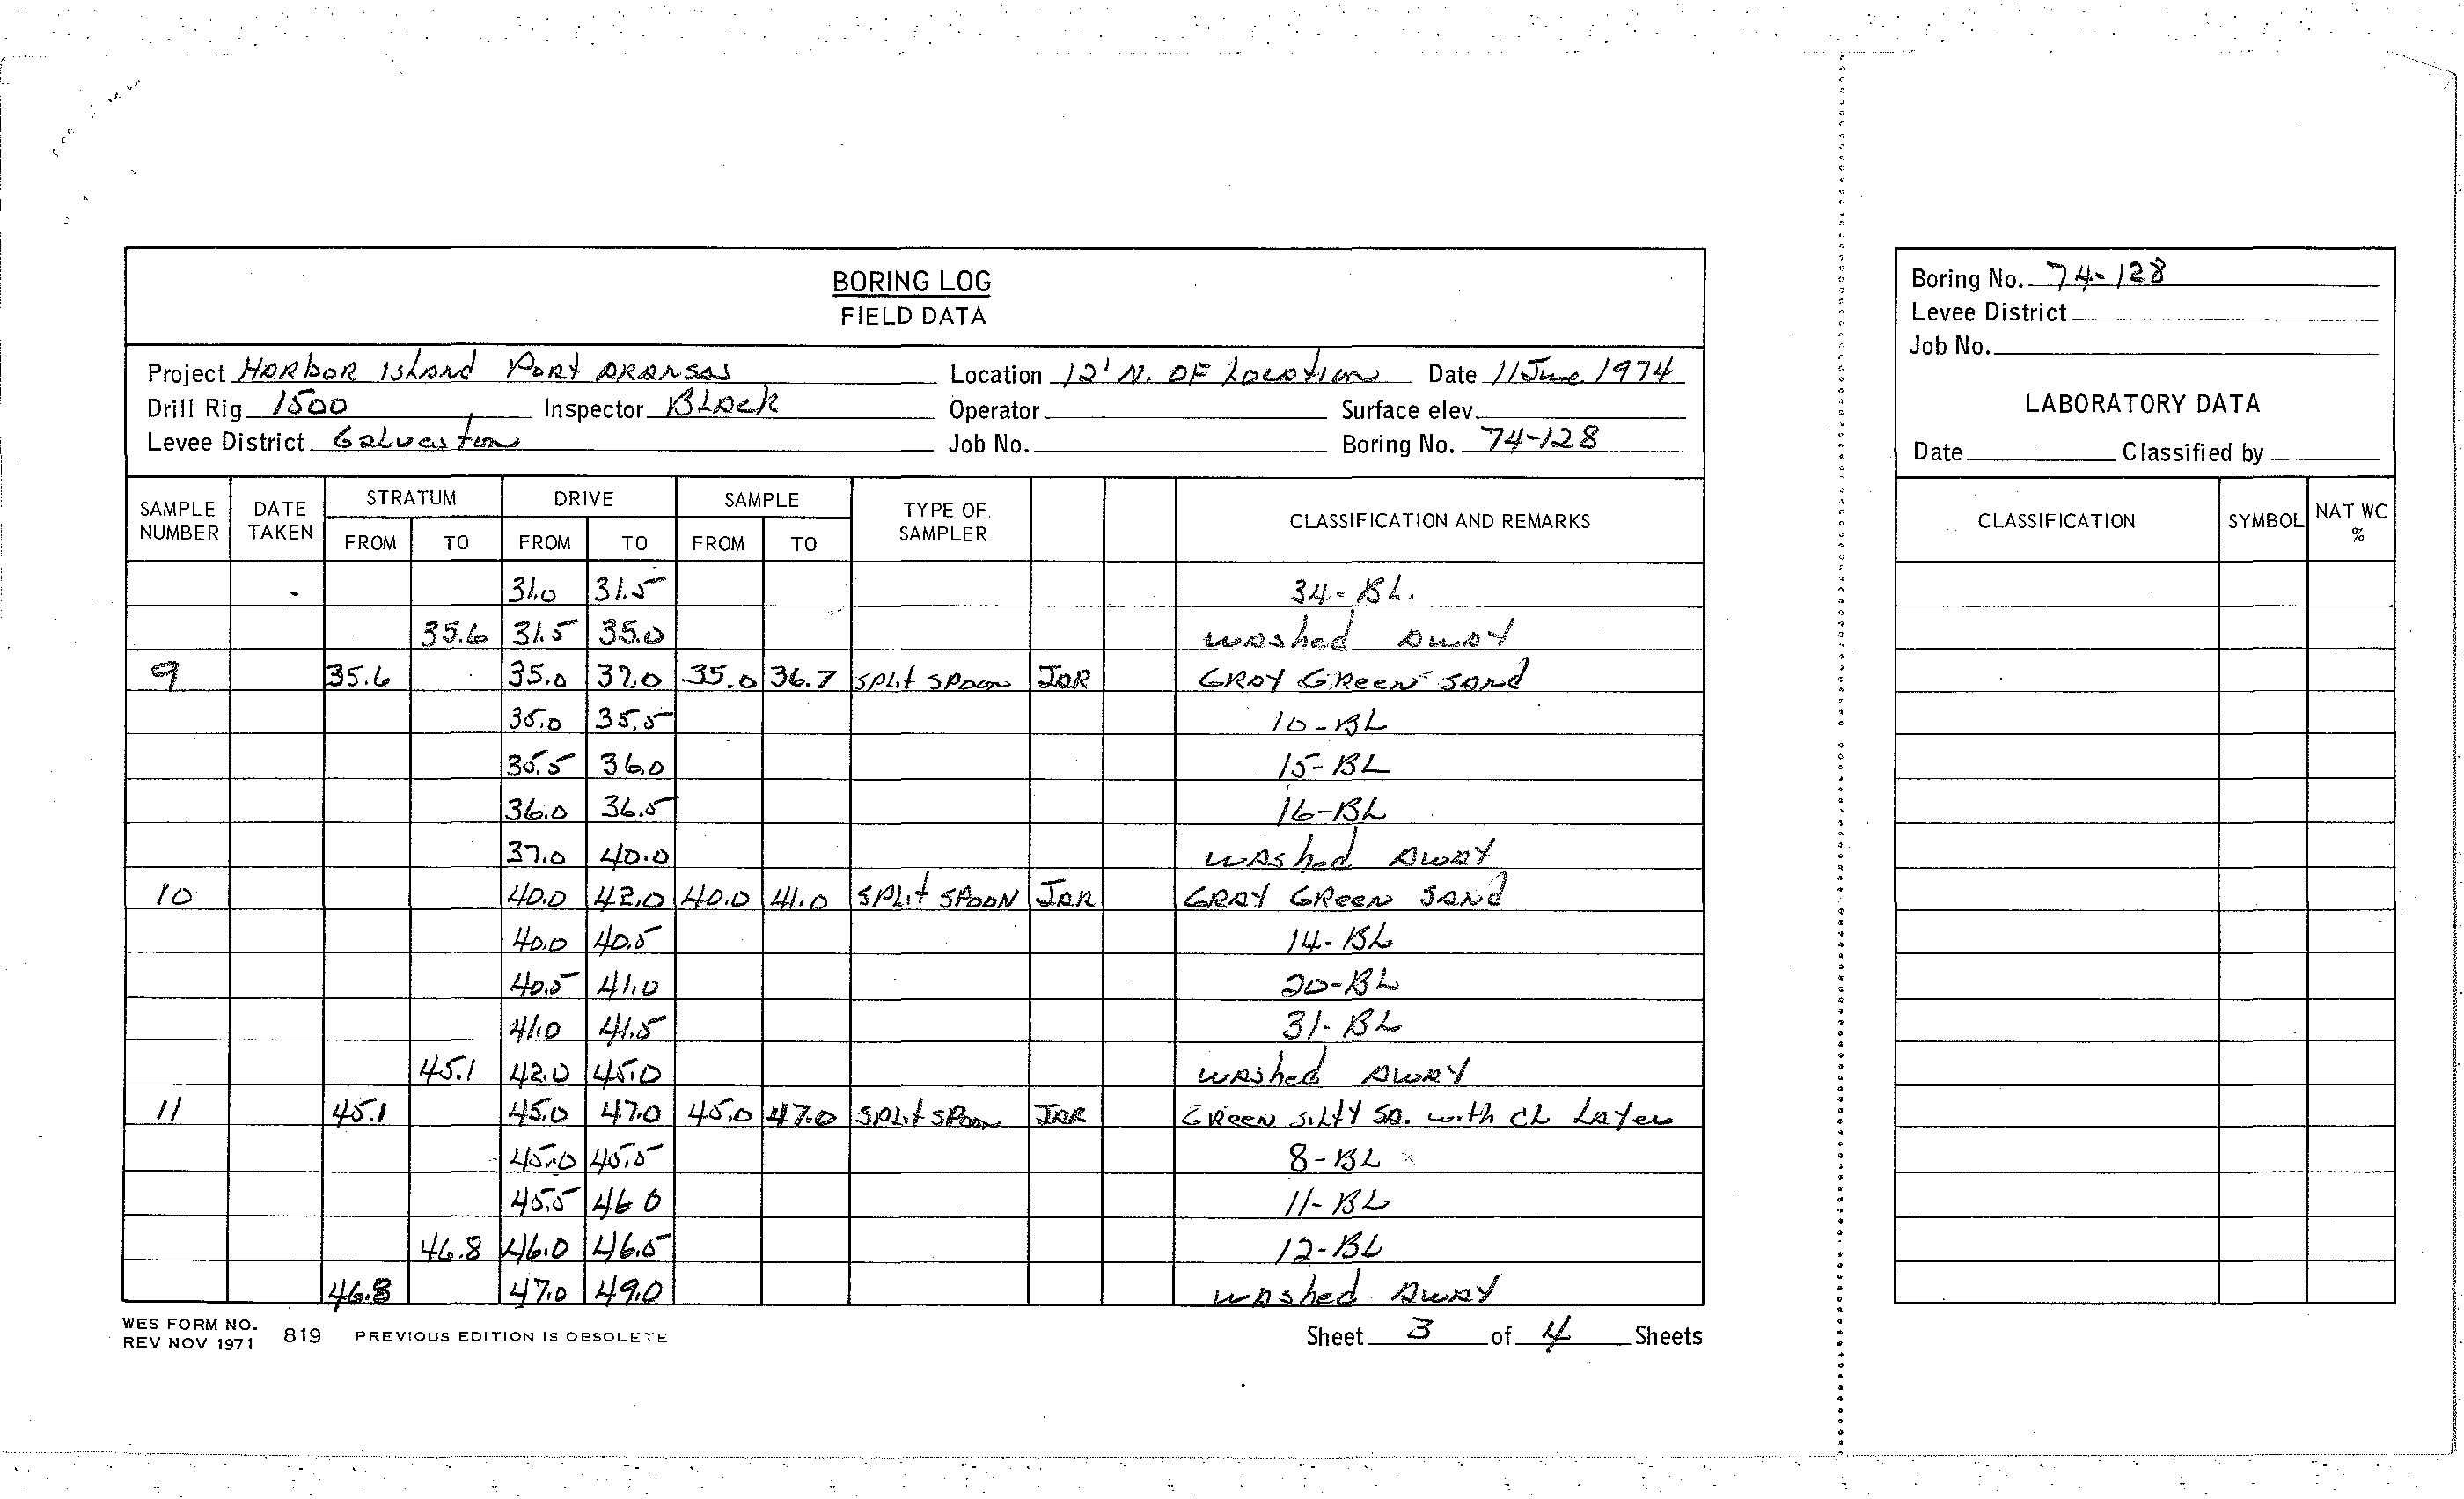 BORING LOG
FIELD DATA
Project HARBOR ISLAND PORT ARANSAS Location 12' N. OF LOCATION Date 11 June 1974
Drill Rig 1500 Inspector BLACK Operator Surface elev.
Levee District Galveston Job No. Boring No. 74-128
SAMPLE NUMBER DATE TAKEN STRATUM FROM TO DRIVE FROM TO SAMPLE FROM TO TYPE OF SAMPLER CLASSIFICATION AND REMARKS
31.0 31.5 34-BL.
35.6 31.5 35.0 washed AWAY
9 35.6 35.0 37.0 35.0 36.7 SPLit SPOON JAR GRAY GReeN SAND
35.0 35.5 10-BL
35.5 36.0 15-BL
36.0 36.5 16-BL
37.0 40.0 washed AWAY
10 40.0 42.0 40.0 41.0 SPLit SPOON JAR GRAY GReeN SAND
40.0 40.5 14-BL
40.5 41.0 20-BL
41.0 41.5 31-BL
45.1 42.0 45.0 washed AWAY
11 45.1 45.0 47.0 45.0 47.0 SPLit SPOON JAR GReeN siLtY SA. with CL LAYers
45.0 45.5 8-BL
45.5 46.0 11-BL
46.8 46.0 46.5 12-BL
46.8 47.0 49.0 washed AWAY
WES FORM NO. 819 PREVIOUS EDITION IS OBSOLETE
REV NOV 1971
Sheet 3 of 4 Sheets
Boring No. 74-128
Levee District
Job No.
LABORATORY DATA
Date Classified by
CLASSIFICATION SYMBOL NAT WC %